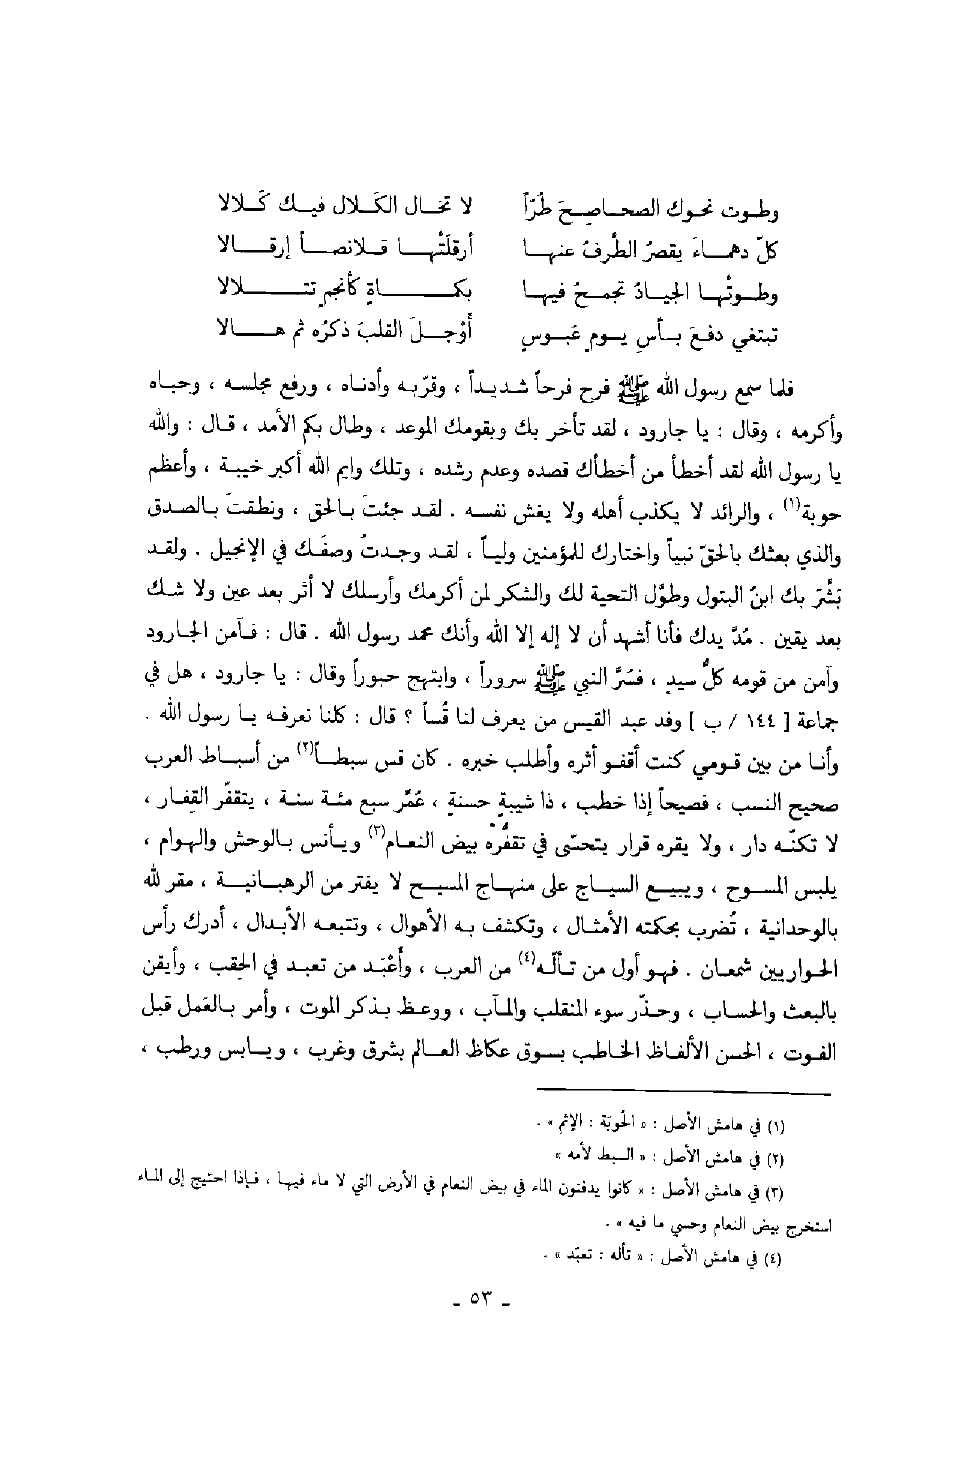 وطوت نحوك الصحاصحَ طُرّاً لا تخال الكَلال فيك كَلالا
كلّ دهماءَ يقصرُ الطّرفُ عنها أرقلَتْها قلانصاً إرقالا
وطوتْها الجيادُ تجمحُ فيها بكماةٍ كأنجمٍ تتلالا
تبتغي دفعَ بأسِ يومٍ عَبوسٍ أوْجلَ القلبَ ذكرُه ثم هالا
فلما سمع رسول الله ﷺ فرح فرحاً شديداً ، وقرّبه وأدناه ، ورفع مجلسه ، وحباه
وأكرمه ، وقال : يا جارود ، لقد تأخر بك وبقومك الموعد ، وطال بكم الأمد ، قال : والله
يا رسول الله لقد أخطأ من أخطأك قصده وعدم رشده ، وتلك وايم الله أكبر خيبة ، وأعظم
حوبة(١) ، والرائد لا يكذب أهله ولا يغش نفسه . لقد جئتَ بالحق ، ونطقتَ بالصدق
والذي بعثك بالحقّ نبياً واختارك للمؤمنين ولياً ، لقد وجدتُ وصفَك في الإنجيل . ولقد
بَشَّرَ بك ابنُ البتول وطوَّل التحية لك والشكر لمن أكرمك وأرسلك لا أثر بعد عين ولا شك
بعد يقين . مُدَّ يدك فأنا أشهد أن لا إله إلا الله وأنك محمد رسول الله . قال : فآمن الجارود
وآمن من قومه كلُّ سيد ، فسُرَّ النبي ﷺ سروراً ، وابتهج حبوراً وقال : يا جارود ، هل في
جماعة [ ١٤٤ / ب ] وفد عبد القيس من يعرف لنا قُساً ؟ قال : كلنا نعرفه يا رسول الله .
وأنا من بين قومي كنت أقفو أثره وأطلب خبره . كان قس سبطاً(٢) من أسباط العرب
صحيح النسب ، فصيحاً إذا خطب ، ذا شيبةٍ حسنةٍ ، عُمِّر سبع مئة سنة ، يتقفّر القِفار ،
لا تكنّه دار ، ولا يقره قرار يتحسّى في تقفُّره بيض النعام(٣) ويأنس بالوحش والهوام ،
يلبس المسوح ، ويبيع السياج على منهاج المسيح لا يفتر من الرهبانية ، مقر لله
بالوحدانية ، تُضرب بحكمته الأمثال ، وتكشف به الأهوال ، وتتبعه الأبدال ، أدرك رأس
الحواريين شمعان . فهو أول من تألّه(٤) من العرب ، وأَعْبَد من تعبد في الحقب ، وأيقن
بالبعث والحساب ، وحذّر سوء المنقلب والمآب ، ووعظ بذكر الموت ، وأمر بالعَمل قبل
الفوت ، الحسن الألفاظ الخاطب بسوق عكاظ العالم بشرق وغرب ، ويابس ورطب ،
(١) في هامش الأصل : « الحُوبَة : الإثم » .
(٢) في هامش الأصل : « السبط لأمه »
(٣) في هامش الأصل : « كانوا يدفنون الماء في بيض النعام في الأرض التي لا ماء فيها ، فإذا احتيج إلى الماء
استخرج بيض النعام وحسي ما فيه » .
(٤) في هامش الأصل : « تأله : تعبّد » .
- ٥٣ -